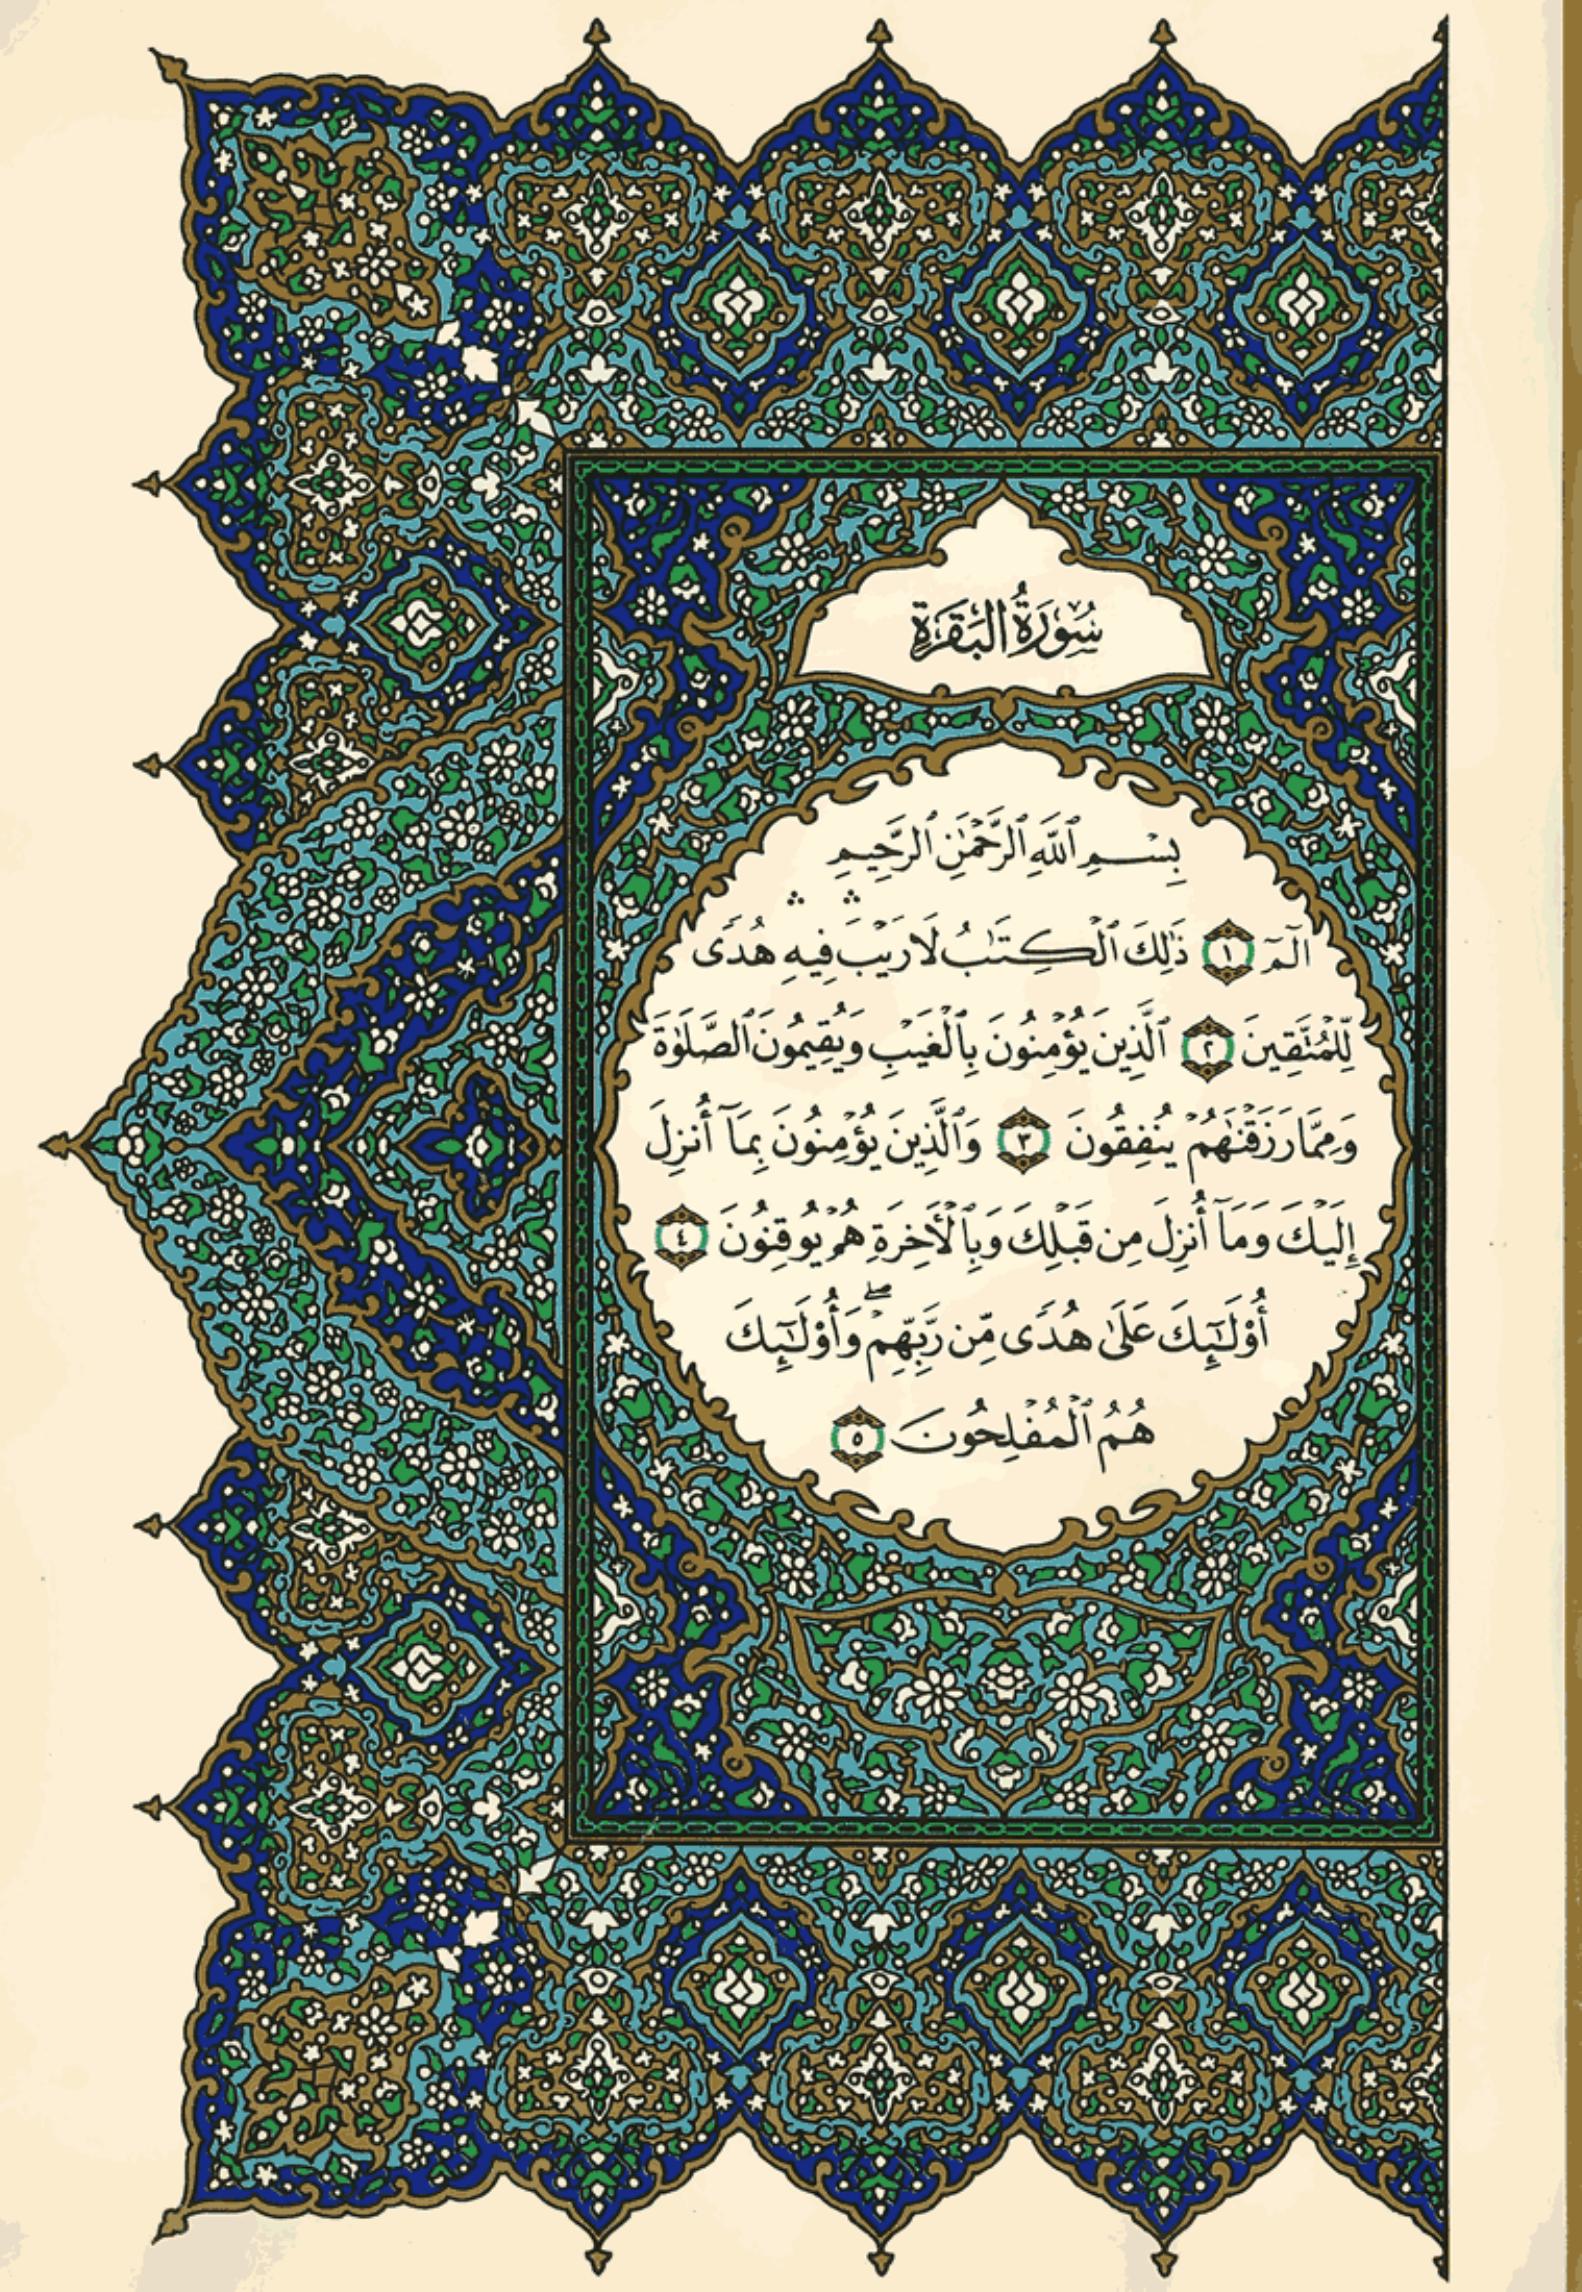 سُورَةُ البَقَرَةِ
بِسْمِ ٱللَّهِ ٱلرَّحْمَٰنِ ٱلرَّحِيمِ
الٓمٓ ١ ذَٰلِكَ ٱلْكِتَٰبُ لَا رَيْبَ ۛ فِيهِ ۛ هُدًى
لِّلْمُتَّقِينَ ٢ ٱلَّذِينَ يُؤْمِنُونَ بِٱلْغَيْبِ وَيُقِيمُونَ ٱلصَّلَوٰةَ
وَمِمَّا رَزَقْنَٰهُمْ يُنفِقُونَ ٣ وَٱلَّذِينَ يُؤْمِنُونَ بِمَآ أُنزِلَ
إِلَيْكَ وَمَآ أُنزِلَ مِن قَبْلِكَ وَبِٱلْأَخِرَةِ هُمْ يُوقِنُونَ ٤
أُوْلَٰٓئِكَ عَلَىٰ هُدًى مِّن رَّبِّهِمْ ۖ وَأُوْلَٰٓئِكَ
هُمُ ٱلْمُفْلِحُونَ ٥